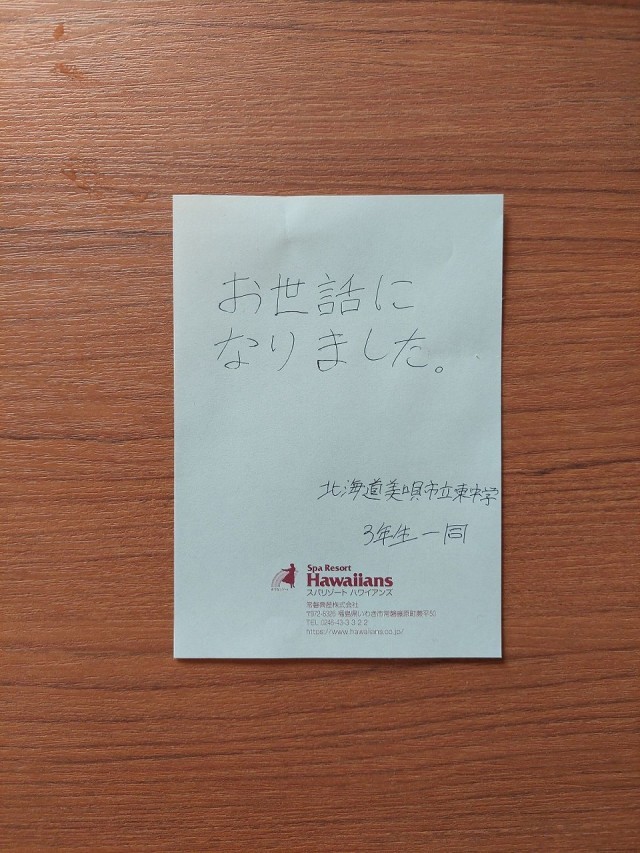 お世話に
なりました。
北海道美唄市立東中学
3年生一同
Spa Resort
Hawaiians
スパリゾート ハワイアンズ
常磐興産株式会社
〒972-8326 福島県いわき市常磐藤原町蕨平50
TEL 0246-43-3322
https://www.hawaiians.co.jp/